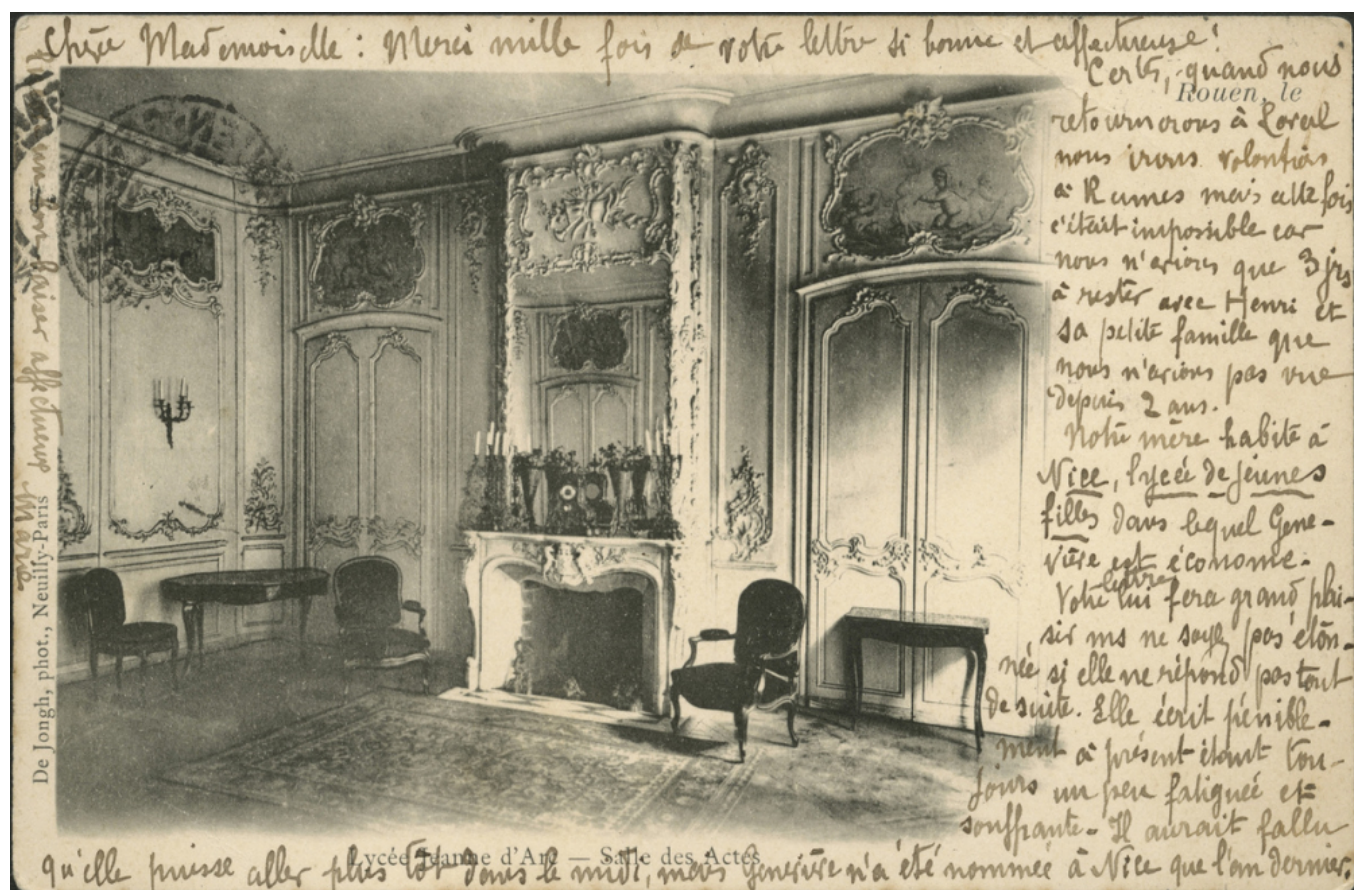 Chère Mademoiselle : Merci mille fois de votre lettre si bonne et affectueuse !
Certes, quand nous
Rouen, le
retournerons à
nous irons volontiers
à Rennes mais cette fois
c'était impossible car
nous n'avions que 3 jrs
à rester avec Henri et
sa petite famille que
nous n'avions pas vue
depuis 2 ans.
Notre mère habite à
Nice, lycée de jeunes
filles dans lequel Gene-
viève est économe.
Votre lettre lui fera grand plai-
sir ms ne soyez pas éton-
née si elle ne répond pas tout
de suite. Elle écrit pénible-
ment à présent étant tou-
jours un peu fatiguée et
souffrante - Il aurait fallu
qu'elle puisse aller plus tôt dans le midi, mais Geneviève n'a été nommée à Nice que l'an dernier.
Lycée Jeanne d'Arc — Salle des Actes
De Jongh, phot., Neuilly-Paris
bon baiser affectueux Marie